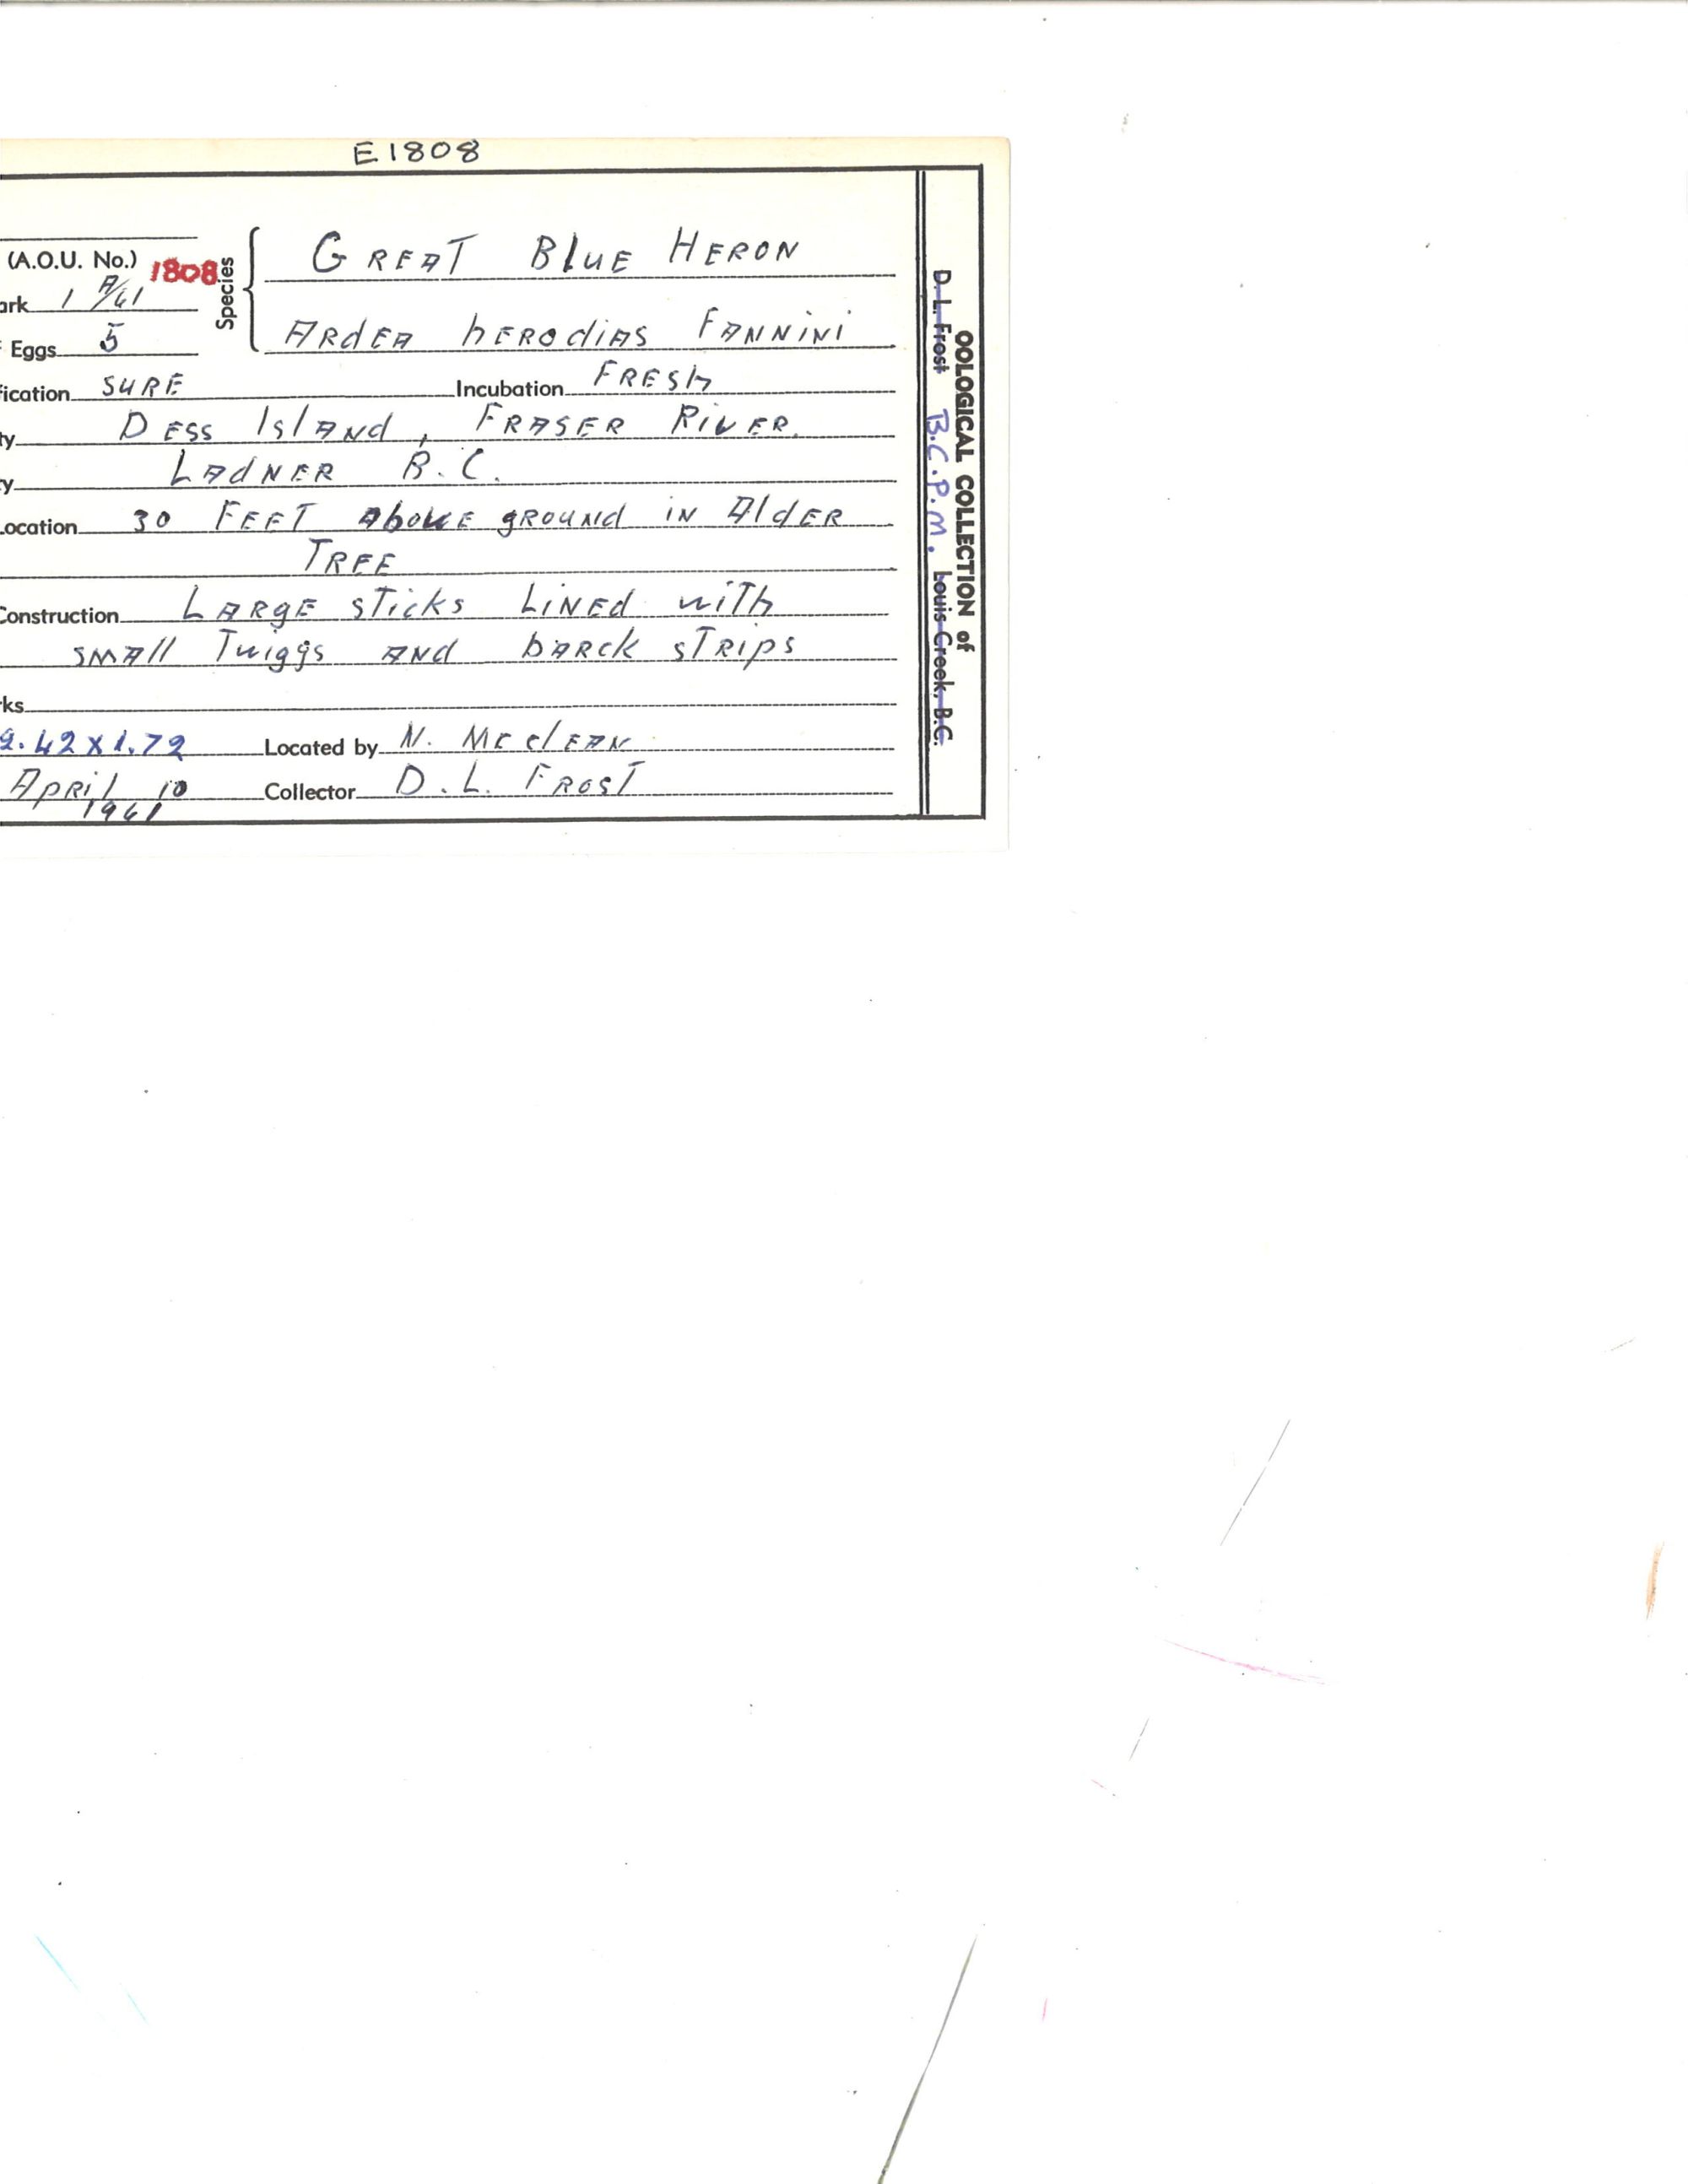 E1808
(A.O.U. No.) 1808
ark 1 A/61
Species
GREAT BLUE HERON
ARdEA hERodiAS FANNiNi
Eggs 5
ication SURE Incubation FRESh
ty DESS IslANd, FRASER RiVER.
y LAdNER B.C.
ocation 30 FEET AboVE gROUNd iN AldER
TREE
Construction LARgE sTicks LiNEd wiTh
smAll Twiggs ANd bARck sTRips
ks
2.42 x 1.72 Located by N. McclEAN
APRil 10 Collector D.L. FROST
1961
OOLOGICAL COLLECTION of
D. L. Frost B.C.P.M. Louis Creek, B.C.